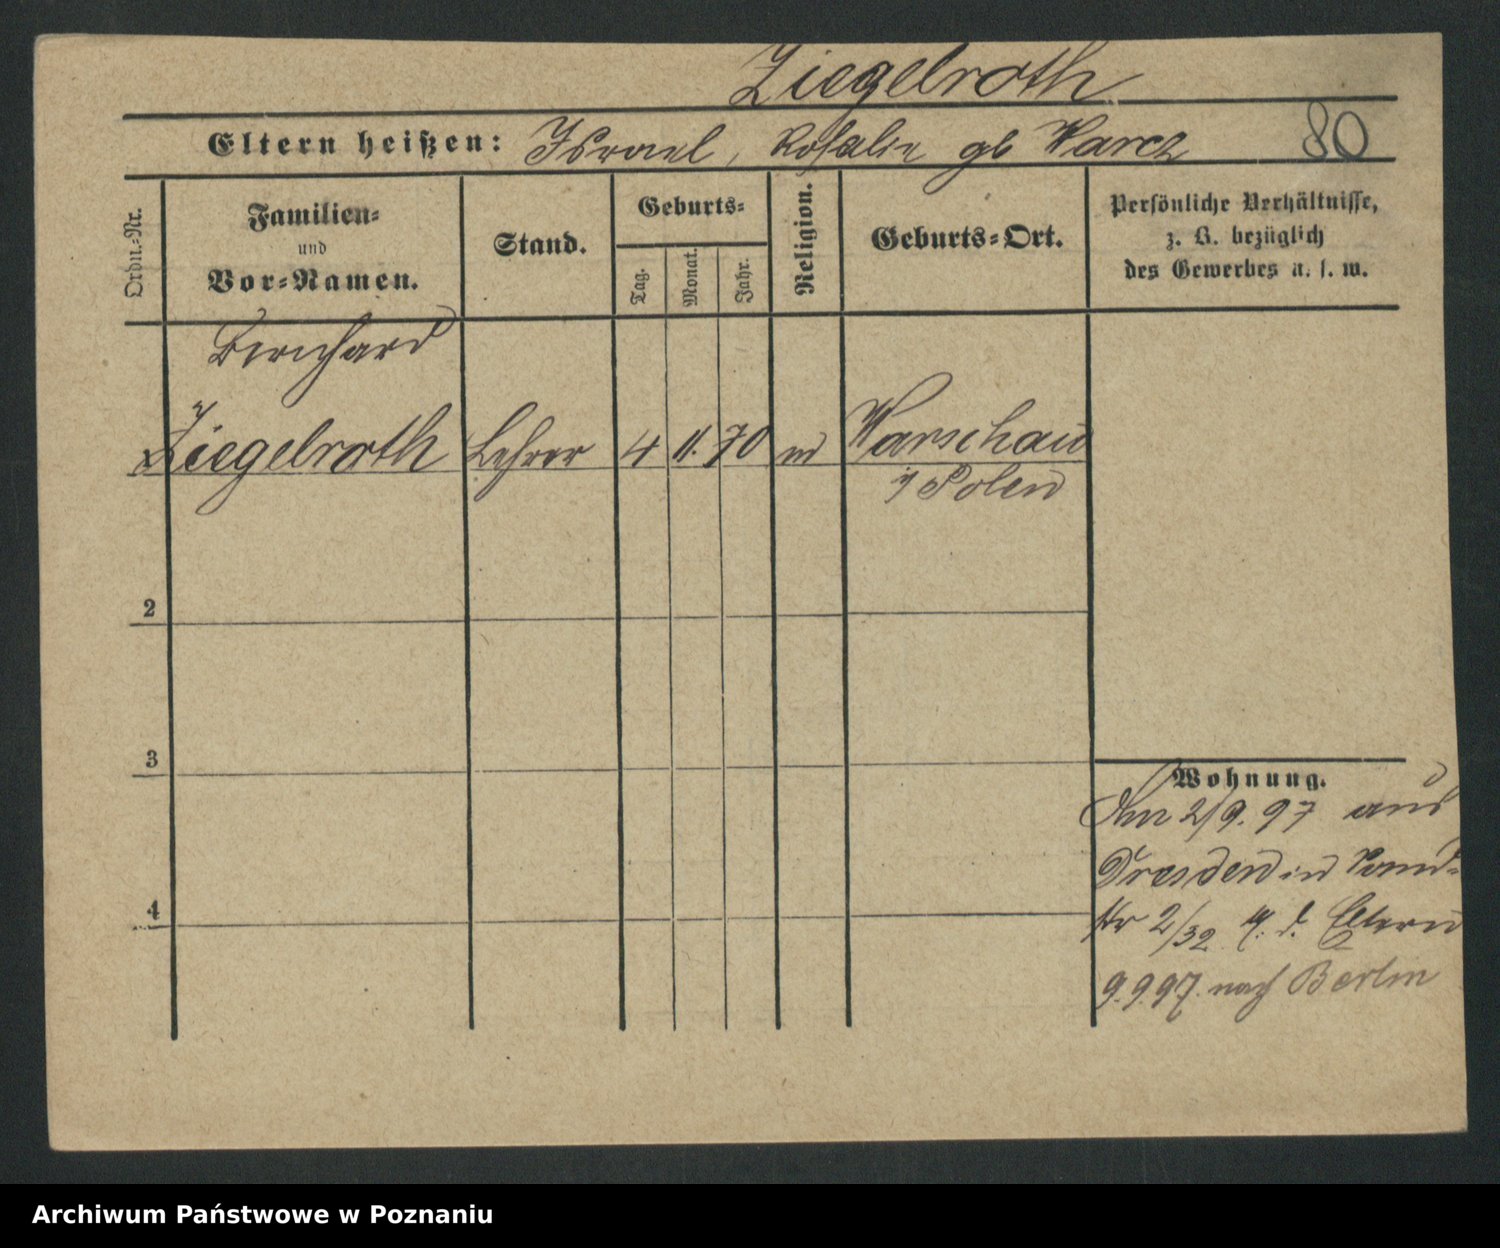 Ziegelroth
Eltern heißen: Israel, Rosalie gb Warcz 80
Ordn.-Nr.
Familien-
und
Vor-Namen.
Stand.
Geburts-
Tag.
Monat.
Jahr.
Religion.
Geburts-Ort.
Persönliche Verhältnisse,
z. B. bezüglich
des Gewerbes u. s. w.
Bernhard
Ziegelroth Lehrer 4 11. 70 Warschau
Polen
2
3
4
Wohnung.
2/9. 97 aus
Dresden
2/32 Eltern
9.9.97. nach Berlin
Archiwum Państwowe w Poznaniu